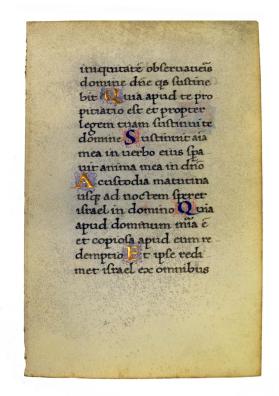 iniquitate observaveris
domine dne qs sustine
bit Quia apud te pro
pitiatio est et propter
legem tuam sustinui te
domine Sustinuit aia
mea in verbo eius spa
vit anima mea in dno
A custodia matutina
usq ad noctem speret
israel in domino Quia
apud dominum mia e
et copiosa apud eum re
demptio Et ipse redi
met israel ex omnibus